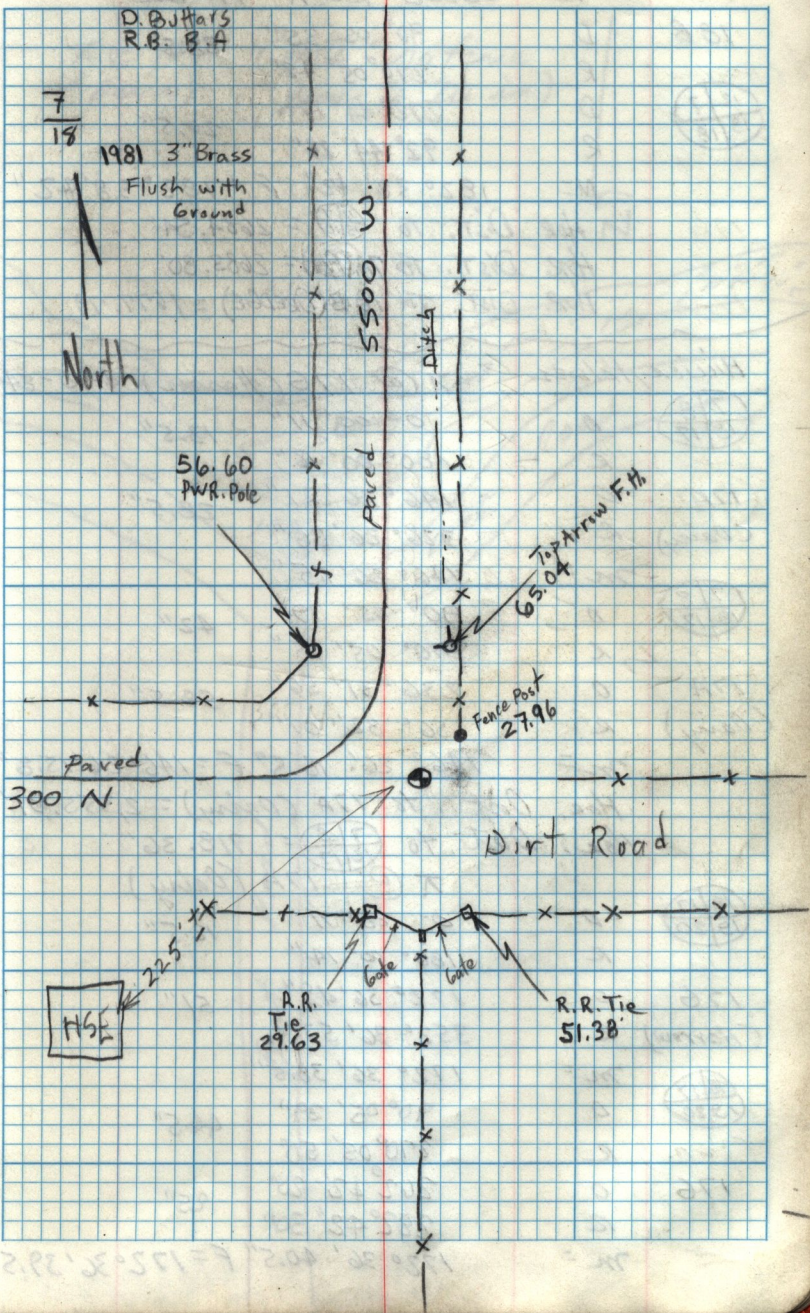 D. Buttars
R.B. B.A
7
18
1981 3" Brass
Flush with
Ground
North
5500 W.
Paved
Ditch
56.60
PWR. Pole
Top Arrow F.H.
65.04
Fence Post
27.96
Paved
300 N.
Dirt Road
225'
HSE
Gate
Gate
R.R.
Tie
29.63
R.R. Tie
51.38'